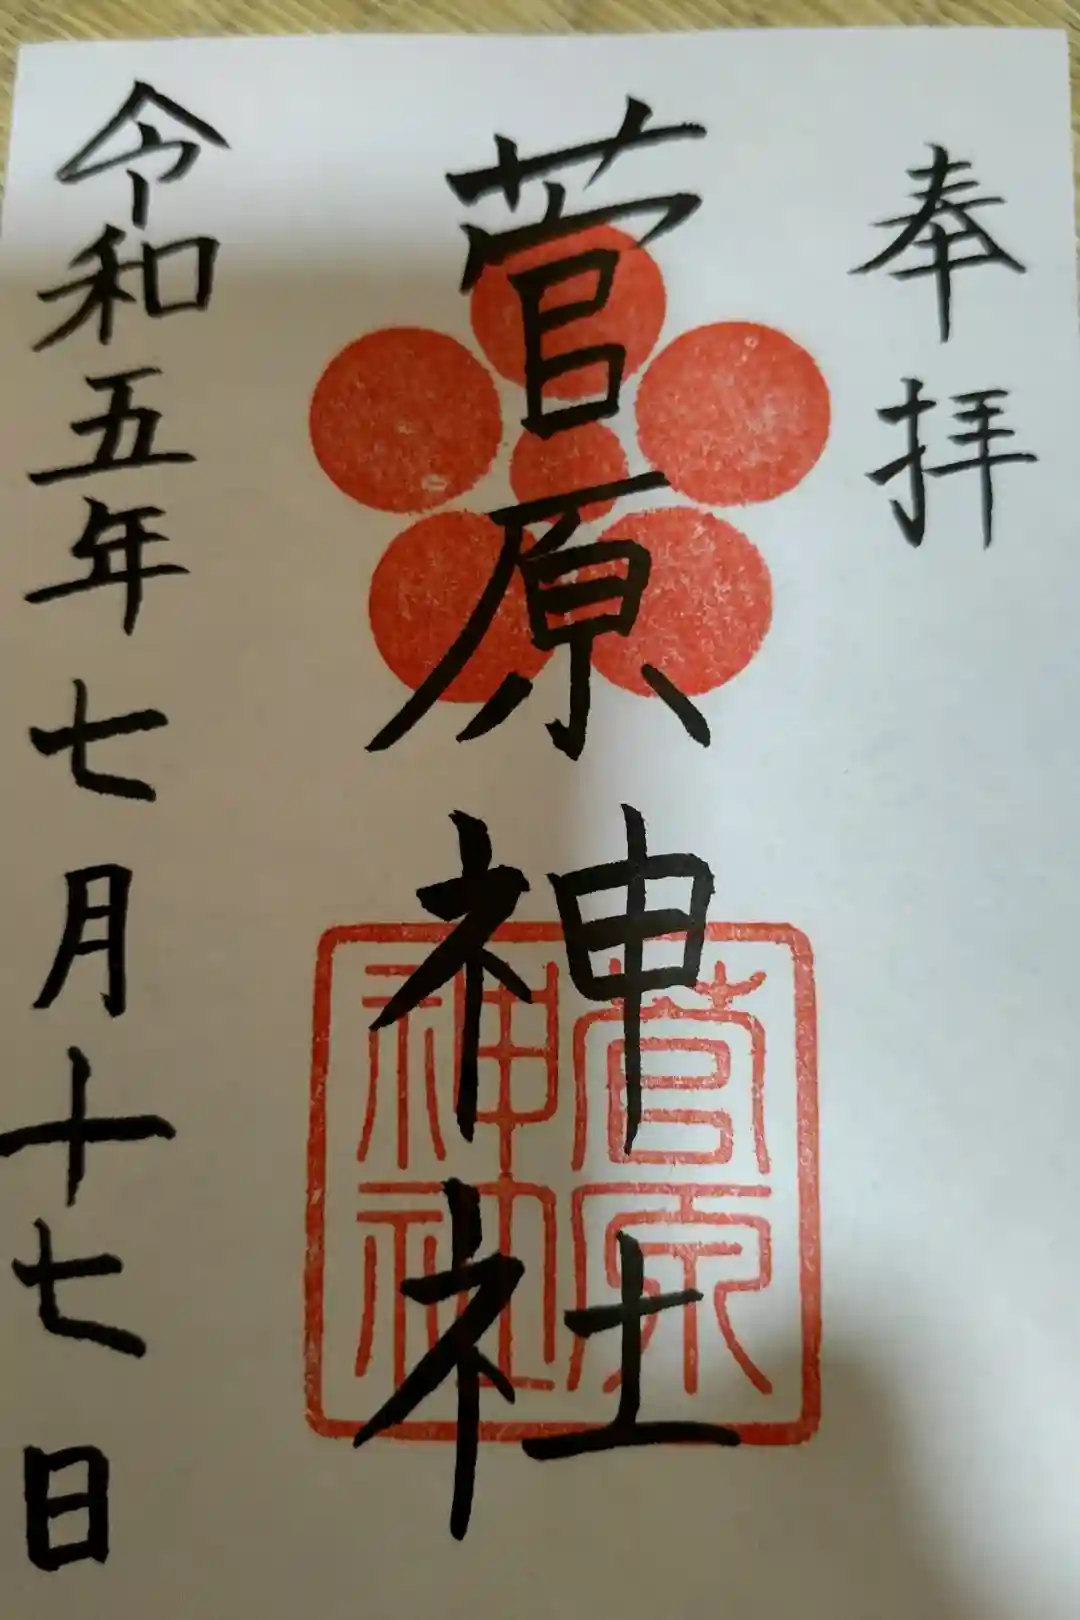 奉拝
菅原神社
菅原
神社
令和五年七月十七日